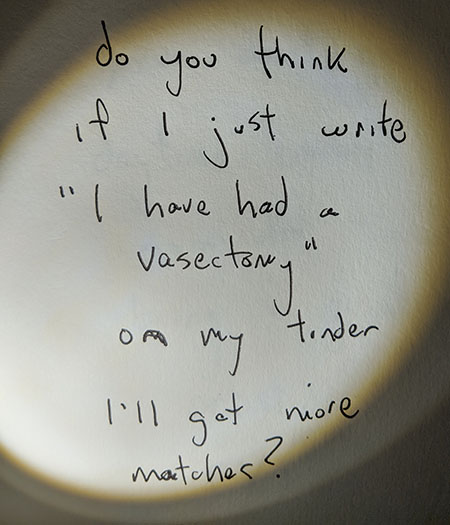 do you think
if I just write
"I have had a
vasectomy"
on my tinder
I'll get more
matches?